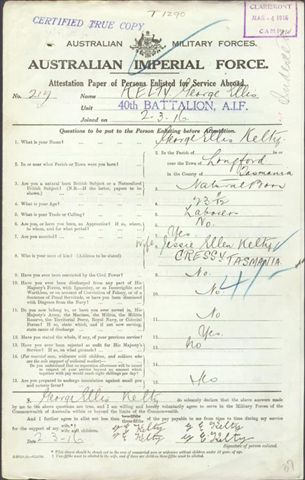 T 1290
CERTIFIED TRUE COPY
CLAREMONT
MAR -4 1916
CAMP
AUSTRALIAN MILITARY FORCES.
AUSTRALIAN IMPERIAL FORCE.
Attestation Paper of Persons Enlisted for Service Abroad.
No. Name KELTY George Ellis
Unit 40th BATTALION, A.I.F.
Joined on 2-3-16
Questions to be put to the Person Enlisting before Attestation.
1. What is your Name? 1. George Ellis Kelty
2. In or near what Parish or Town were you born? 2. In the Parish of
near the Town of Longford
in the County of Tasmania
3. Are you a natural born British Subject or a Naturalized British Subject? (N.B.—If the latter, papers to be shown.) 3. Natural Born
4. What is your Age? 4.
5. What is your Trade or Calling? 5. Laborer
6. Are you, or have you been, an Apprentice? If so, where, to whom, and for what period? 6. No.
7. Are you married? 7. Yes
8. Who is your next of kin? (Address to be stated) 8. Wife, Jessie Ellen Kelty
CRESSY TASMANIA
9. Have you ever been convicted by the Civil Power? 9. No
10. Have you ever been discharged from any part of His Majesty's Forces, with Ignominy, or as Incorrigible and Worthless, or on account of Conviction of Felony, or of a Sentence of Penal Servitude, or have you been dismissed with Disgrace from the Navy? 10. No
11. Do you now belong to, or have you ever served in, His Majesty's Army, the Marines, the Militia, the Militia Reserve, the Territorial Force, Royal Navy, or Colonial Forces? If so, state which, and if not now serving, state cause of discharge 11. No
12. Have you stated the whole, if any, of your previous service? 12. Yes.
13. Have you ever been rejected as unfit for His Majesty's Service? If so, on what grounds? 13. No
14. (For married men, widowers with children, and soldiers who are the sole support of widowed mother)—
Do you understand that no separation allowance will be issued in respect of your service beyond an amount which together with pay would reach eight shillings per day? 14.
15. Are you prepared to undergo inoculation against small pox and enteric fever? 15. Yes
I, George Ellis Kelty do solemnly declare that the above answers made by me to the above questions are true, and I am willing and hereby voluntarily agree to serve in the Military Forces of the Commonwealth of Australia within or beyond the limits of the Commonwealth.
And I further agree to allot not less than of the pay payable to me from time to time during my service
for the support of my wife and children. G E Kelty
Date 2-3-16 G E Kelty
Signature of person enlisted.